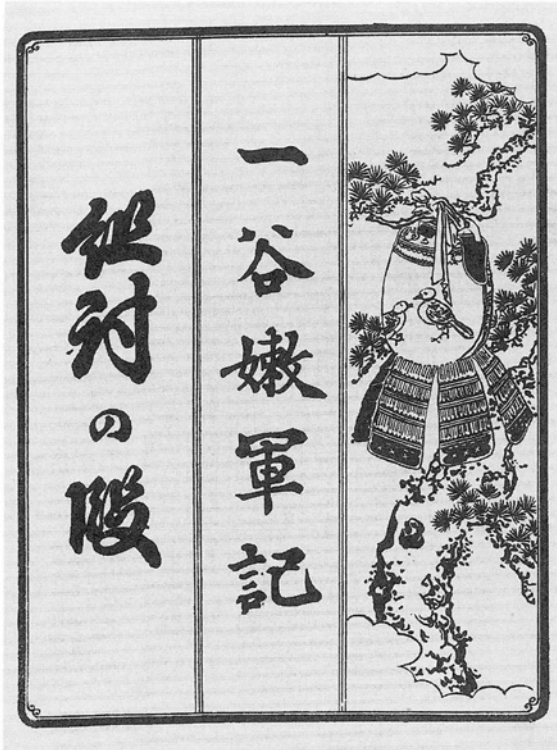 一谷嫩軍記
組討の段